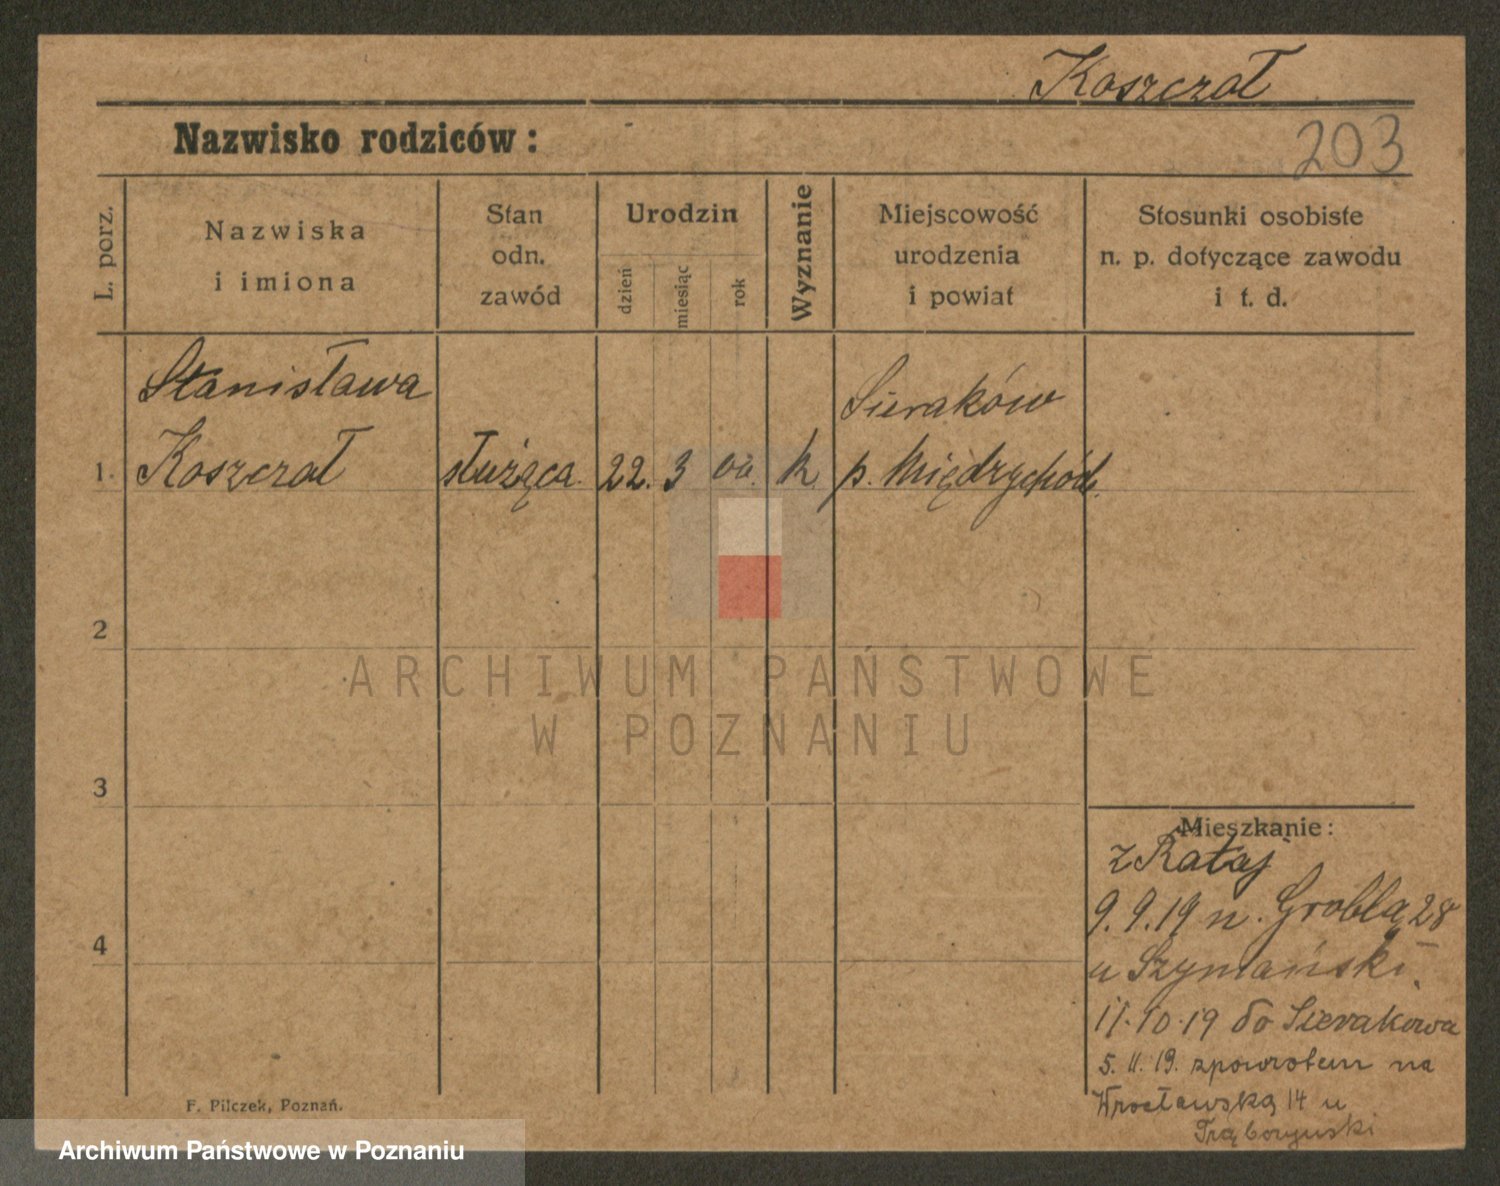 Koszczał
Nazwisko rodziców:
203
L. porz.
Nazwiska
i imiona
Stan
odn.
zawód
Urodzin
dzień
miesiąc
rok
Wyznanie
Miejscowość
urodzenia
i powiat
Stosunki osobiste
n. p. dotyczące zawodu
i t. d.
Stanisława
Sieraków
1. Koszczał służąca. 22. 3 00. k p. Międzychód.
2
ARCHIWUM PAŃSTWOWE
W POZNANIU
3
Mieszkanie:
z Rataj
9.9.19 n. Groblą 28
4
u Szymański.
11.10.19 do Sierakowa
5.11.19. zpowrotem na
Wrocławską 14 u
F. Pilczek, Poznań.
Archiwum Państwowe w Poznaniu